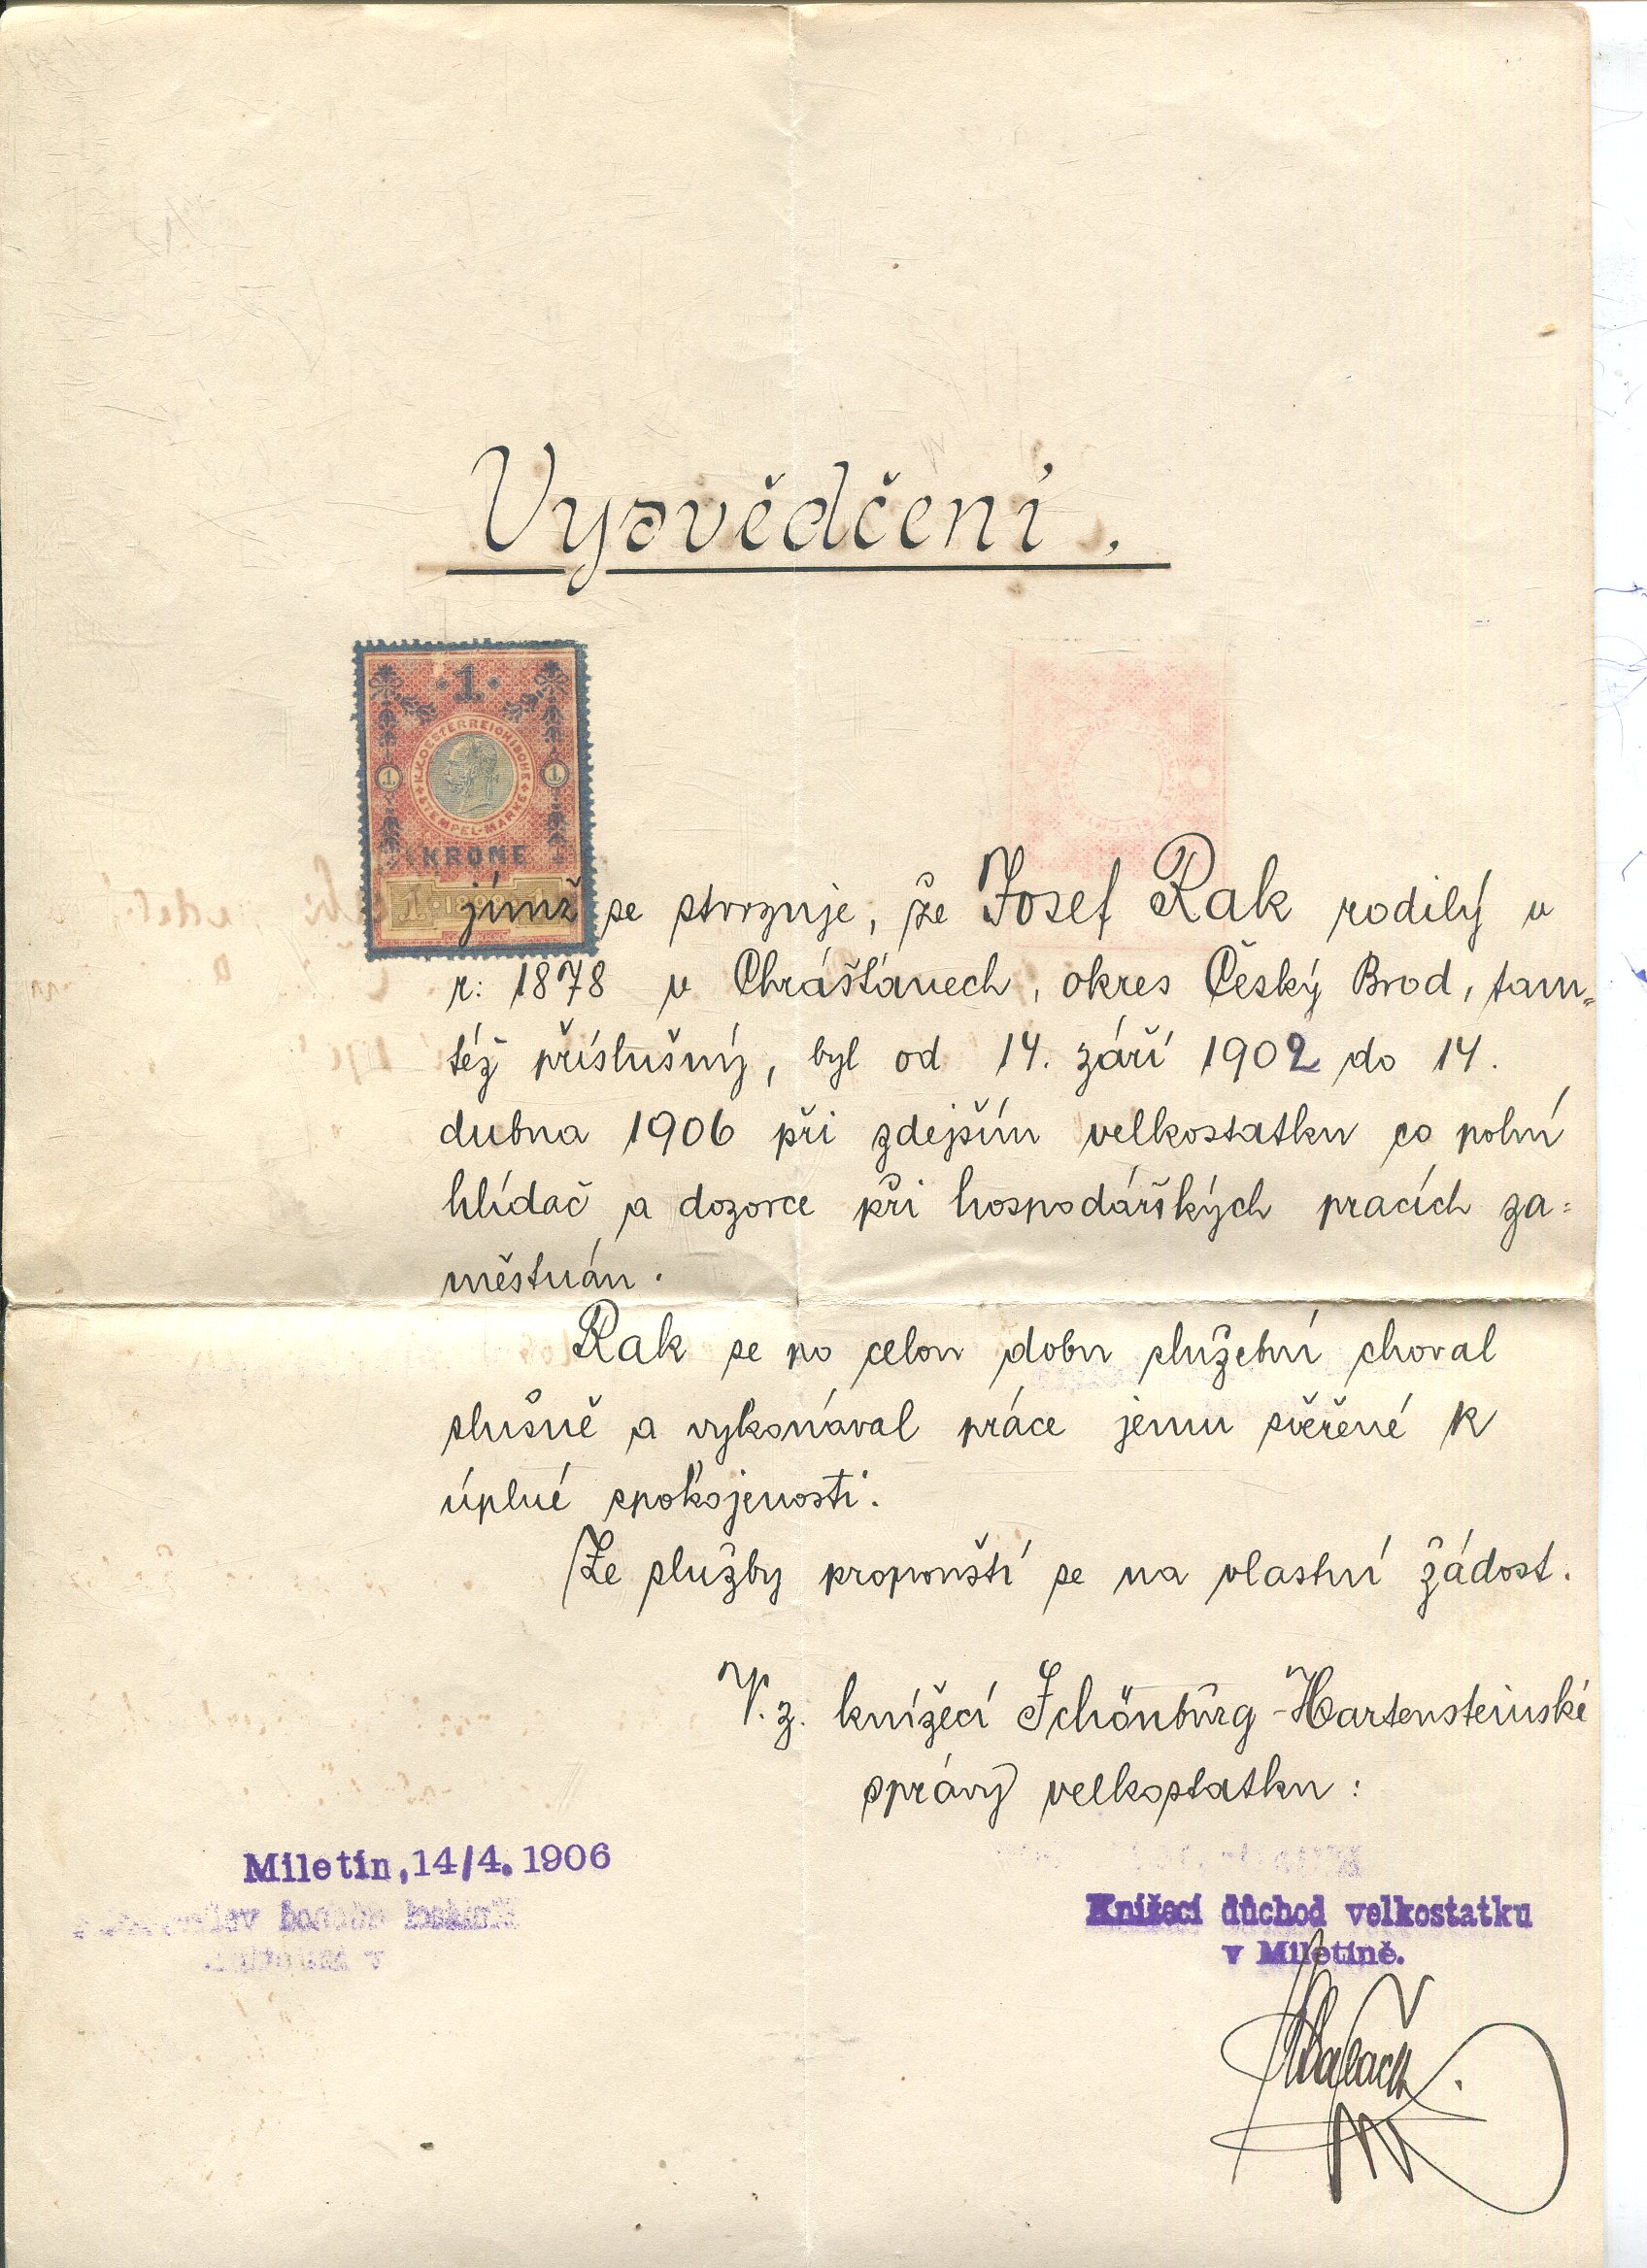 Vysvědčení.
1
K.K. OESTERREICHISCHE
STEMPEL-MARKE
1 1
KRONE
1 1898 1
jímž se stvrzuje, že Josef Rak rodilý v
r: 1878 v Chrášťanech, okres Český Brod, tam=
též příslušný, byl od 14. září 1902 do 14.
dubna 1906 při zdejším velkostatku co polní
hlídač a dozorce při hospodářských pracích za=
městnán.
Rak se po celou dobu služební choval
slušně a vykonával práce jemu svěřené k
úplné spokojenosti.
Ze služby propouští se na vlastní žádost.
V. z. knížecí Schönburg-Hartensteinské
správy velkostatku:
Miletín, 14/4. 1906
Knížecí důchod velkostatku
v Miletíně.